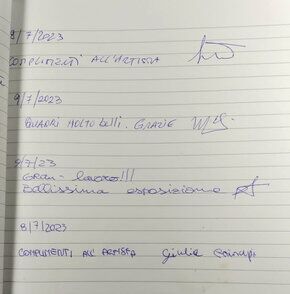 8/7/2023
COMPLIMENTI ALL'ARTISTA
9/7/2023
QUADRI MOLTO BELLI. GRAZIE
9/7/23
GRAN lavoro!!!
Bellissima esposizione
8/7/2023
COMPLIMENTI ALL'ARTISTA Giulia